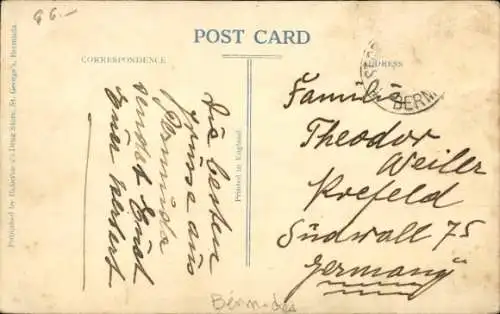 96.-
POST CARD
CORRESPONDENCE
ADDRESS
BERM
Die besten
Grüsse aus
Bermuda
sendet Euch
Euer
Familie
Theodor
Weiler
Krefeld
Südwall 75
Germany
Printed in England.
Drug Store, St. George's, Bermuda
Bermudas